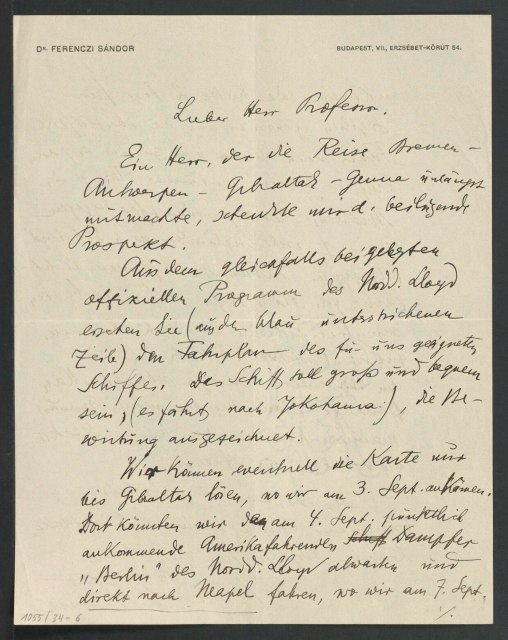 Dr. FERENCZI SÁNDOR
BUDAPEST, VII., ERZSÉBET-KÖRUT 54.
Lieber Herr Professor.
Ein Herr, der die Reise Bremen –
Antwerpen – Gibraltar – Genua unlängst
mitmachte, schenkte mir d. beiliegende
Prospekt.
Aus dem gleichfalls beigelegten
offiziellen Programm des Nordd. Lloyd
ersehen Sie (aus der blau unterstrichenen
Zeile) den Fahrplan des für uns geeigneten
Schiffes. Das Schiff soll groß und bequem
sein, (es fährt nach Yokohama), die Be-
wirtung ausgezeichnet.
Wir können eventuell die Karte nur
bis Gibraltar lösen, wo wir am 3. Sept. ankämen.
Dort könnten wir den am 4. Sept. pünktlich
ankommende Amerikafahrenden Schiff Dampfer
„Berlin" des Nordd. Lloyd abwarten und
direkt nach Neapel fahren, wo wir am 7. Sept.
./.
1055/34-6